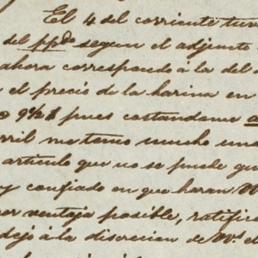 El 4 del corriente tuv
del ppdo segun el adjunto
ahora correspondo á la del
el precio de la harina en
9½ $ pues costandome
rril no tenio mucho un
articulo que no se puede qu
y confiado en que haran V
or ventaja posible, ratific
dejó á la discrecion de Vs. el